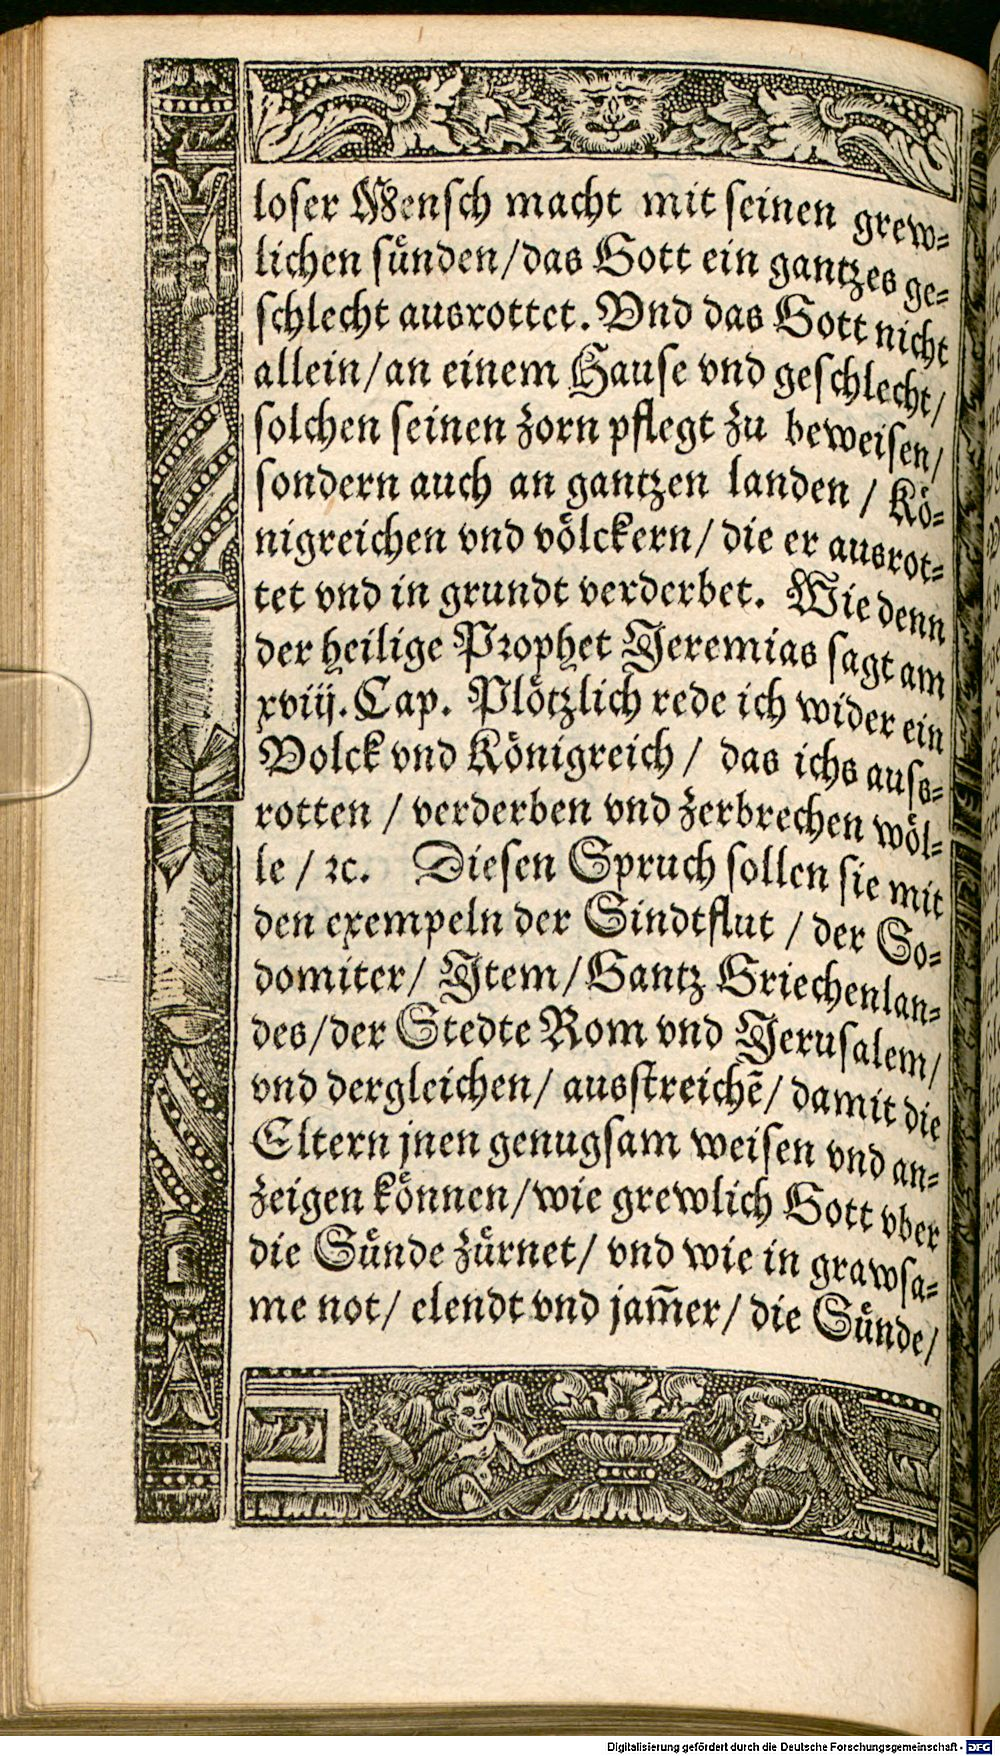 loser Mensch macht mit seinen grew⸗
lichen sünden/das Gott ein gantzes ge⸗
schlecht ausrottet. Vnd das Gott nicht
allein/an einem Hause vnd geschlecht/
solchen seinen zorn pflegt zu beweisen/
sondern auch an gantzen landen / Kö⸗
nigreichen vnd völckern/ die er ausrot⸗
tet vnd in grundt verderbet. Wie denn
der heilige Prophet Jeremias sagt am
xviij. Cap. Plötzlich rede ich wider ein
Volck vnd Königreich / das ichs auss⸗
rotten / verderben vnd zerbrechen wöl⸗
le / ꝛc. Diesen Spruch sollen sie mit
den exempeln der Sindtflut / der So⸗
domiter/ Jtem/Gantz Griechenlan⸗
des/der Stedte Rom vnd Jerusalem/
vnd dergleichen/ ausstreichē/ damit die
Eltern jnen genugsam weisen vnd an⸗
zeigen können/wie grewlich Gott vber
die Sünde zürnet/ vnd wie in grawsa⸗
me not/ elendt vnd jam̃er/ die Sünde/
Digitalisierung gefördert durch die Deutsche Forschungsgemeinschaft - DFG